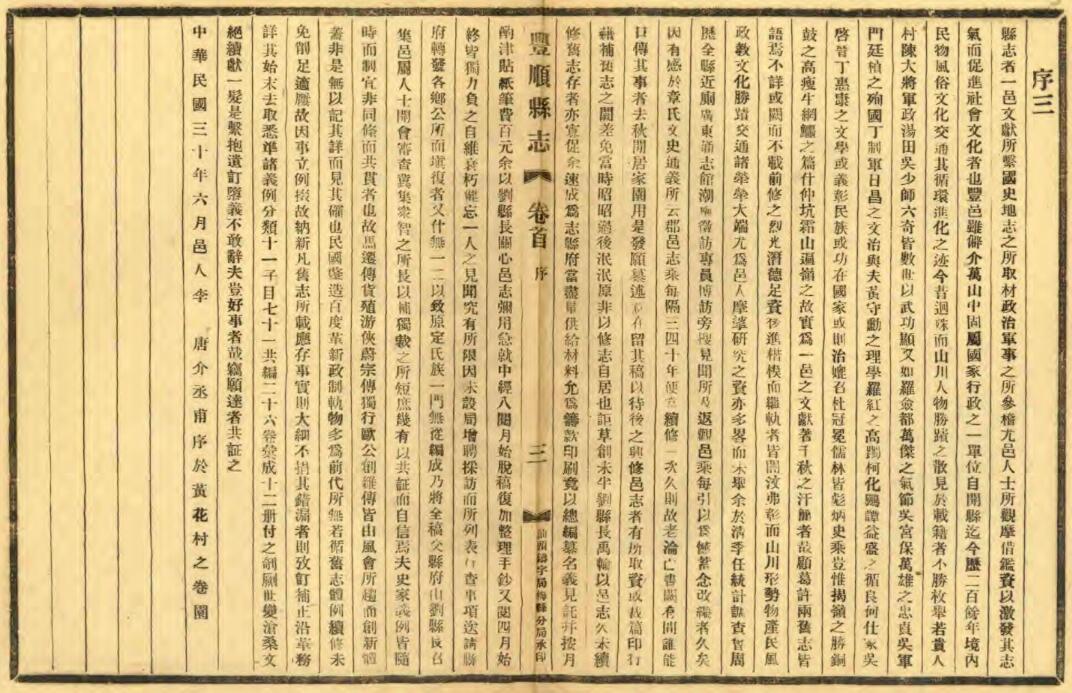 序三
縣志者一邑文獻所繫國史地志之所取材政治軍事之所參稽尤邑人士所觀摩借鑑資以激發其志
氣而促進社會文化者也豐邑雖僻介萬山中固屬國家行政之一單位自開縣迄今歷二百餘年境內
民物風俗文化交通其循環進化之迹今昔迥殊而山川人物勝蹟之散見於載籍者不勝枚舉若貴人
村陳大將軍政湯田吳少師六奇皆數世以武功顯又如羅僉都萬傑之氣節吳宮保萬雄之忠貞吳軍
門廷楨之殉國丁制軍日昌之文治與夫黃守勳之理學羅紅之高躅柯化鵾譚益盛之循良何仕冢吳
啓晉丁惠康之文學或義彰民族或功在國家或則治媲召杜冠冕儒林皆彪炳史乘豈惟揭嶺之勝銅
鼓之高瘦牛網鱷之篇什仲坑霜山遍嶺之故實爲一邑之文獻著千秋之汗簡者哉顧葛許兩舊志皆
語焉不詳或闕而不載前修之烈光潛德足資後進楷模而繼軌者皆闇汶弗彰而山川形勢物產民風
政教文化勝蹟交通諸犖犖大端尤爲邑人摩挲研究之資亦多畧而未舉余於清季任統計調查曾周
歷全縣近廁廣東通志館潮州徵訪專員博訪旁搜見聞所及返觀邑乘每引以爲憾蓄念改編者久矣
因有感於章氏文史通義所云郡邑志乘每隔三四十年便宜續修一次久則故老淪亡書闕有間誰能
口傳其事者去秋閒居家園用是發願纂述意在留其稿以待後之興修邑志者有所取資或裁篇印行
藉補舊志之闕差免當時昭昭過後泯泯原非以修志自居也詎草創未半劉縣長禹輪以邑志久未續
修舊志存者亦寔促余速成爲志縣府當盡量供給材料允爲籌款印刷竟以總編纂名義見託幷按月
酌津貼紙筆費百元余以劉縣長關心邑志彌用急就中經八閱月始脫稿復加整理手鈔又閱四月始
終皆獨力負之自維衰朽健忘一人之見聞究有所限因未設局增聘採訪而所列表冇查事項送請縣
府轉發各鄉公所而塡復者又什無一二以致原定氏族一門無從編成乃將全稿交縣府由劉縣長召
集邑屬人士開會審查冀集衆智之所長以補獨裁之所短庶幾有以共証而自信焉夫史家義例皆隨
時而制宜非同條而共貫者也故馬遷傳貨殖游俠蔚宗傳獨行歐公創雜傳皆由風會所趨而創新體
蓋非是無以記其詳而見其確也民國鼎造百度革新政制軌物多爲前代所無若循舊志體例續修未
免削足適屨故因事立例掇故納新凡舊志所載應存事實則大綱不捐其錯漏者則攷訂補正沿革務
詳其始末去取悉準諸義例分類十一子目七十一共編二十六卷彙成十二册付之剞劂世變滄桑文
絕續獻一髮是繫抱遺訂墜義不敢辭夫豈好事者哉竊願達者共証之
中華民國三十年六月邑人李 唐介丞甫序於黃花村之卷園
豐順縣志 卷首 序 三
汕頭鑄字局梅縣分局承印